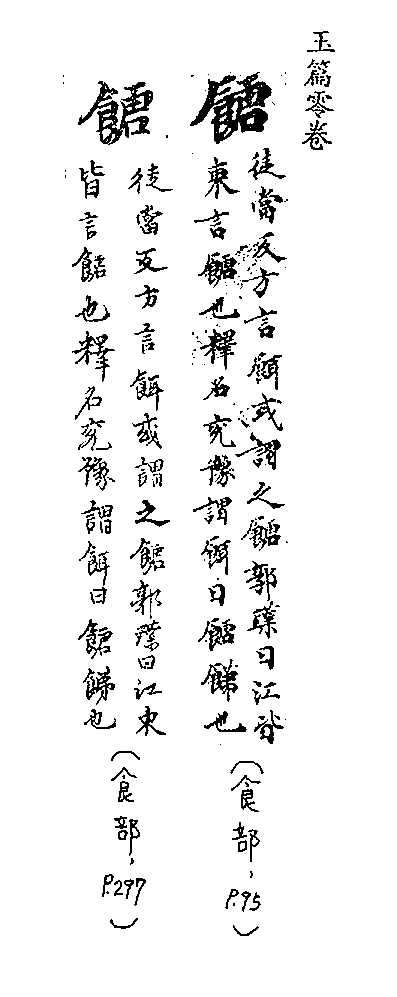 玉篇零卷
餹
徒當反方言餌或謂之餹郭璞曰江皆
東言餹也釋名兗豫謂餌曰餹䬾也
(食部，P.95)
餹
徒當反方言餌或謂之餹郭璞曰江東
皆言餹也釋名兗豫謂餌曰餹䬾也
(食部，P.297)